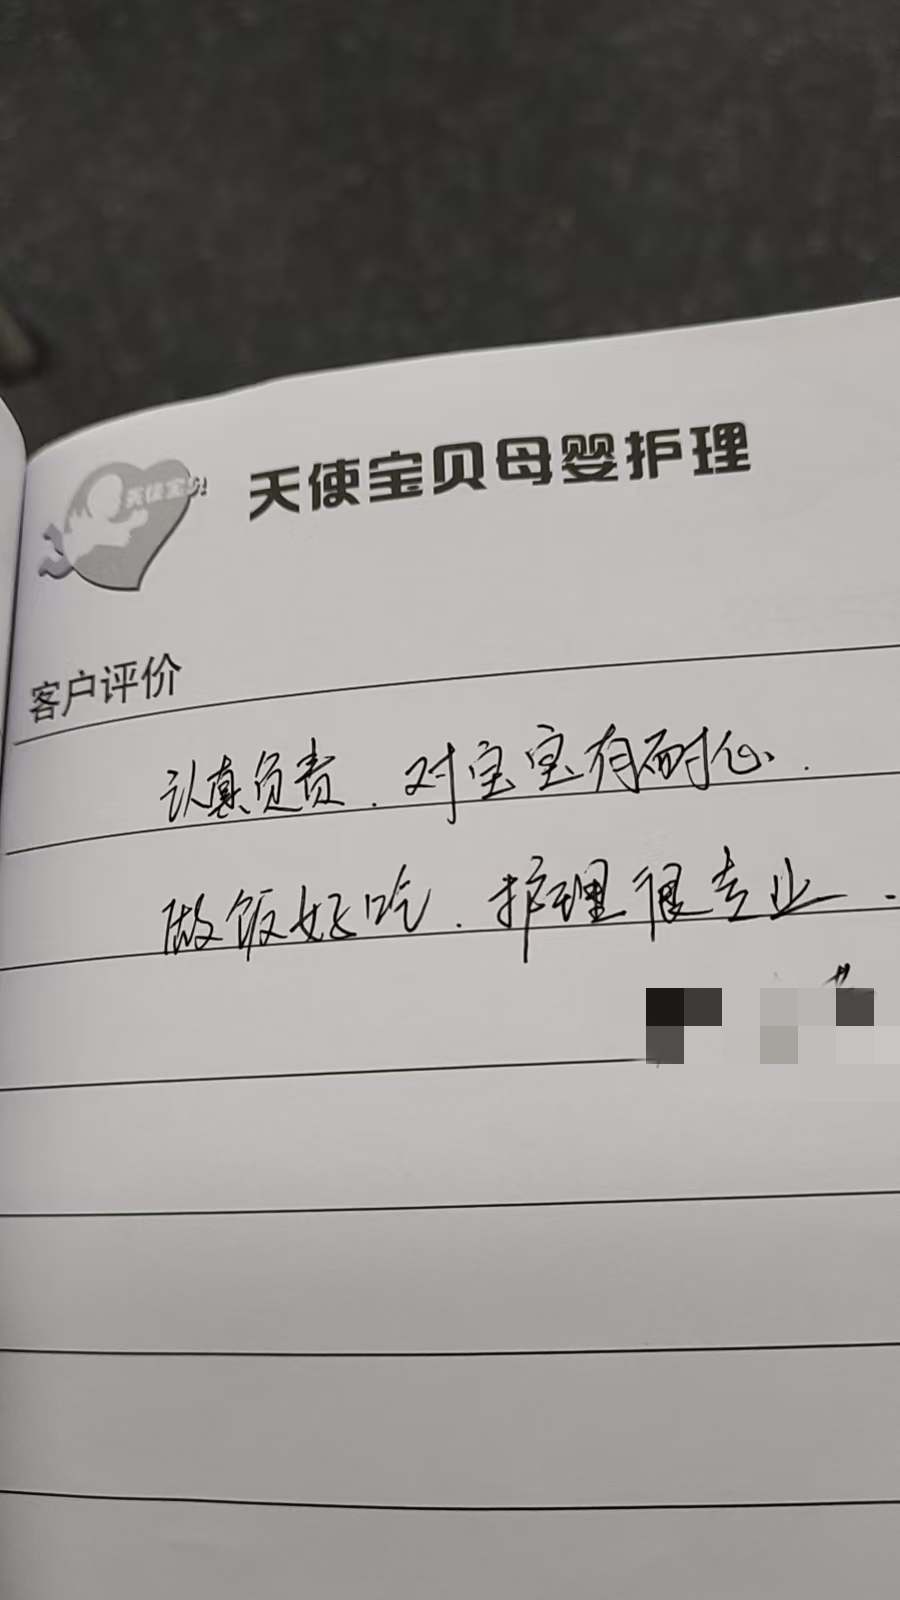 天使宝贝
天使宝贝母婴护理
客户评价
认真负责.对宝宝有耐心.
做饭好吃.护理很专业.